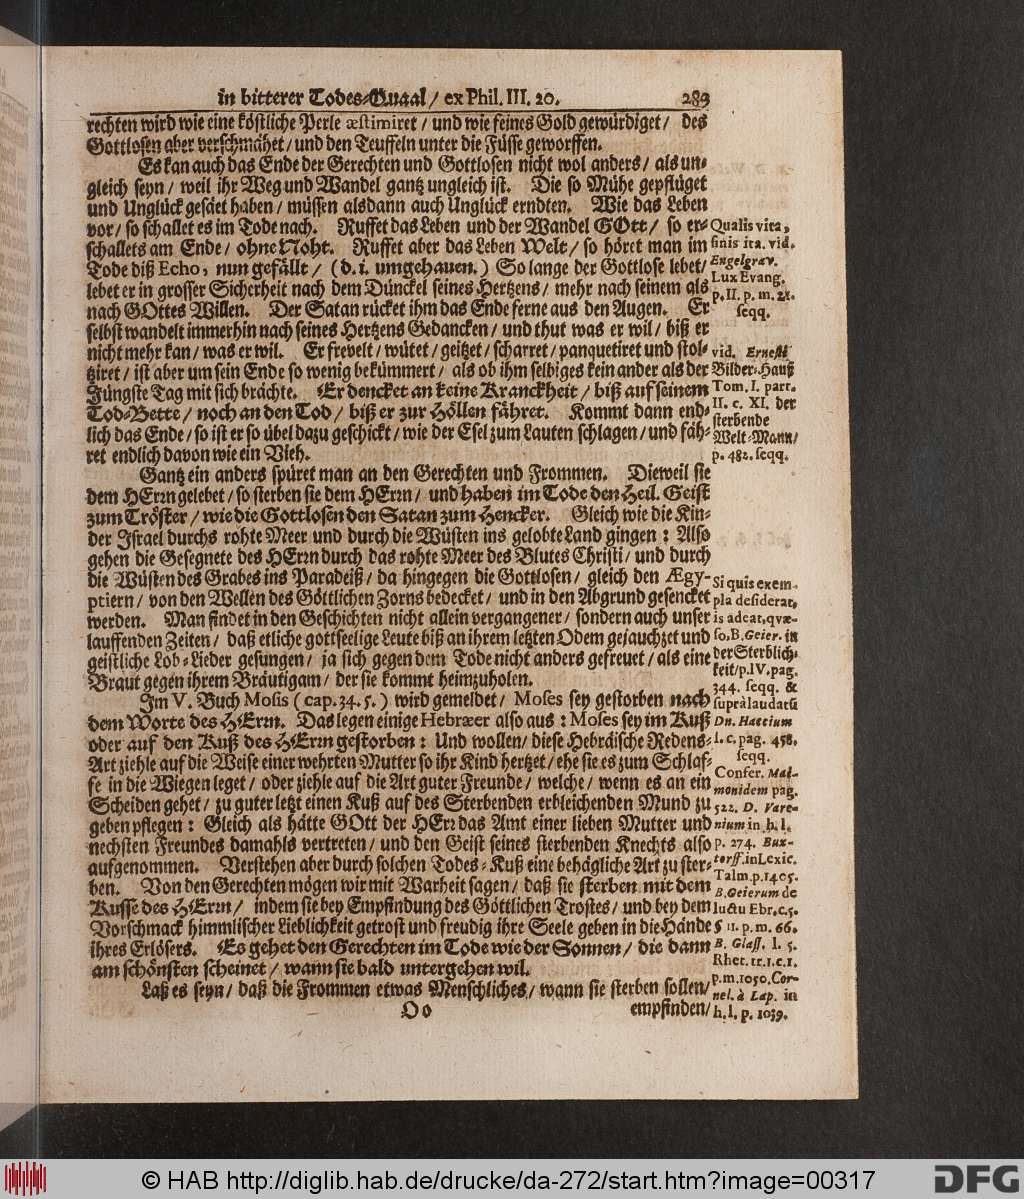 in bitterer Todes-Quaal / ex Phil. III. 20. 289
rechten wird wie eine köstliche Perle æstimiret / und wie feines Gold gewürdiget / des
Gottlosen aber verschmähet / und den Teuffeln unter die Füsse geworffen.
Es kan auch das Ende der Gerechten und Gottlosen nicht wol anders / als un-
gleich seyn / weil ihr Weg und Wandel gantz ungleich ist. Die so Mühe gepflüget
und Unglück gesäet haben / müssen alsdann auch Unglück erndten. Wie das Leben
vor / so schallet es im Tode nach. Ruffet das Leben und der Wandel GOtt / so er-
schallets am Ende / ohne Noht. Ruffet aber das Leben Welt / so höret man im
Tode diß Echo, nun gefällt / (d. i. umgehauen.) So lange der Gottlose lebet /
lebet er in grosser Sicherheit nach dem Dünckel seines Hertzens / mehr nach seinem als
nach GOttes Willen. Der Satan rücket ihm das Ende ferne aus den Augen. Er
selbst wandelt immerhin nach seines Hertzens Gedancken / und thut was er wil / biß er
nicht mehr kan / was er wil. Er frevelt / wütet / geitzet / scharret / panquetiret und stol-
tziret / ist aber um sein Ende so wenig bekümmert / als ob ihm selbiges kein ander als der
Jüngste Tag mit sich brächte. Er dencket an keine Kranckheit / biß auf seinem
Tod-Bette / noch an den Tod / biß er zur Höllen fähret. Kommt dann end-
lich das Ende / so ist er so übel dazu geschickt / wie der Esel zum Lauten schlagen / und fäh-
ret endlich davon wie ein Vieh.
Gantz ein anders spüret man an den Gerechten und Frommen. Dieweil sie
dem HErrn gelebet / so sterben sie dem HErrn / und haben im Tode den Heil. Geist
zum Tröster / wie die Gottlosen den Satan zum Hencker. Gleich wie die Kin-
der Israel durchs rohte Meer und durch die Wüsten ins gelobte Land gingen: Also
gehen die Gesegnete des HErrn durch das rohte Meer des Blutes Christi / und durch
die Wüsten des Grabes ins Paradeiß / da hingegen die Gottlosen / gleich den Ægy-
ptiern / von den Wellen des Göttlichen Zorns bedecket / und in den Abgrund gesencket
werden. Man findet in den Geschichten nicht allein vergangener / sondern auch unser
lauffenden Zeiten / daß etliche gottseelige Leute biß an ihrem letzten Odem gejauchzet und
geistliche Lob-Lieder gesungen / ja sich gegen dem Tode nicht anders gefreuet / als eine
Braut gegen ihrem Bräutigam / der sie kommt heimzuholen.
Im V. Buch Mosis (cap. 34. 5.) wird gemeldet / Moses sey gestorben nach
dem Worte des HErrn. Das legen einige Hebræer also aus: Moses sey im Kuß
oder auf den Kuß des HErrn gestorben: Und wollen / diese Hebräische Redens-
Art ziehle auf die Weise einer wehrten Mutter so ihr Kind hertzet / ehe sie es zum Schlaf-
fe in die Wiegen leget / oder ziehle auf die Art guter Freunde / welche / wenn es an ein
Scheiden gehet / zu guter letzt einen Kuß auf des Sterbenden erbleichenden Mund zu
geben pflegen: Gleich als hätte GOtt der HErr das Amt einer lieben Mutter und
nechsten Freundes damahls vertreten / und den Geist seines sterbenden Knechts also
aufgenommen. Verstehen aber durch solchen Todes-Kuß eine behägliche Art zu ster-
ben. Von den Gerechten mögen wir mit Warheit sagen / daß sie sterben mit dem
Kusse des HErrn / indem sie bey Empfindung des Göttlichen Trostes / und bey dem
Vorschmack himmlischer Lieblichkeit getrost und freudig ihre Seele geben in die Hände
ihres Erlösers. Es gehet den Gerechten im Tode wie der Sonnen / die dann
am schönsten scheinet / wann sie bald untergehen wil.
Laß es seyn / daß die Frommen etwas Menschliches / wann sie sterben sollen /
Oo empfinden /
Qualis vita,
finis ita. vid.
Engelgrav.
Lux Evang.
p. II. p. m. 21.
seqq.
vid. Ernesti
Bilder-Hauß
Tom. I. part.
II. c. XI. der
sterbende
Welt-Mann /
p. 482. seqq.
Si quis exem-
pla desiderat,
is adeat, qvæ-
so, B. Geier. in
der Sterblich-
keit / p. IV. pag.
344. seqq. &
suprà laudatū
Dn. Hattium
l. c. pag. 458.
seqq.
Confer. Mai-
monidem pag.
522. D. Vare-
nium in h. l.
p. 274. Bux-
torff. in Lexic.
Talm. p. 1405.
B. Geierum de
luctu Ebr. c. 5.
§ 11. p. m. 66.
B. Glass. l. 5.
Rhet. tr. 1. c. 1.
p. m. 1050. Cor-
nel. à Lap. in
h. l. p. 1039.
© HAB http://diglib.hab.de/drucke/da-272/start.htm?image=00317
DFG